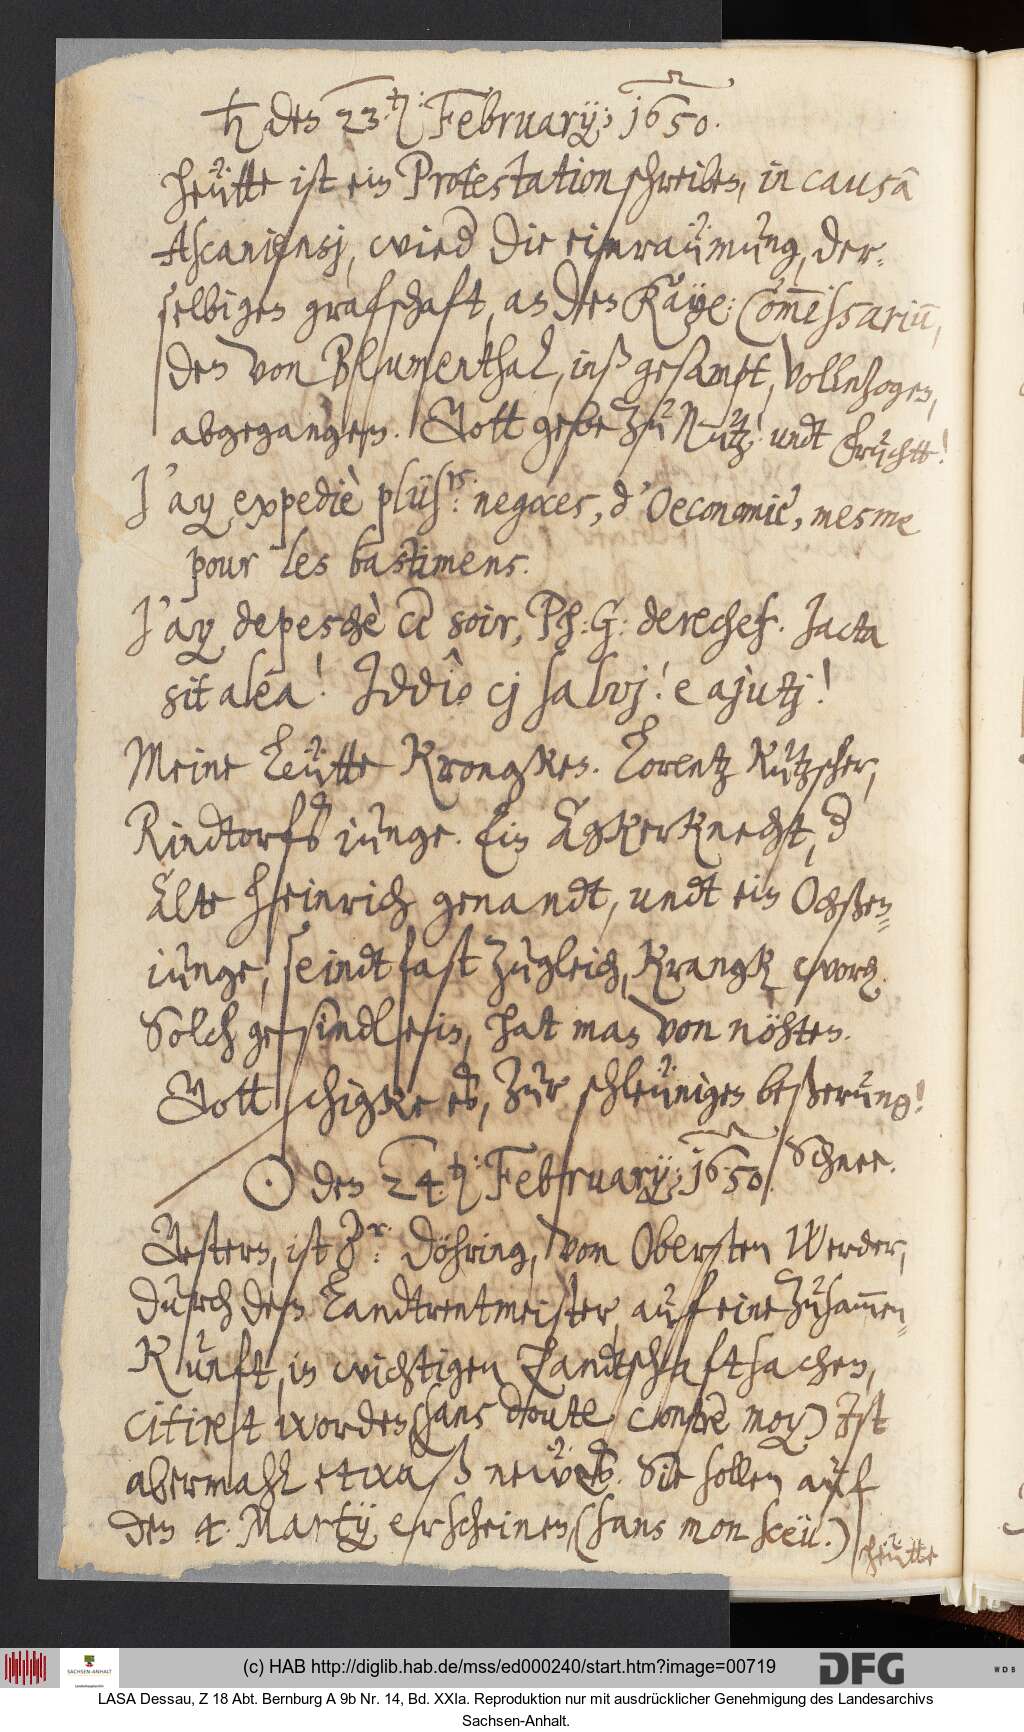 ♄ den 23.ten: February; 1650.
Heütte ist ein Protestation schreiben, in causa
Ascaniensj, wied die einraümung, der-
selbigen grafschaft, an den Kayß: Com̅issariu̅,
den von Blumenthal, inß gesampt, vollnzogen,
abgegangen. Gott gebe zu Nutz! undt fruchtt!
J'ay expediè plüs:rs negoces, d'Oeconomie, mesme
pour les bastimens.
J'ay depeschè ce soir, Ph: G: derechef. Jacta
sit alea! Iddio cj salvj! e ajutj!
Meine Leütte krongken. Lorentz Kutzscher,
Rindtorfs iunge. Ein Agkerknecht, d
Alte Heinrich genandt, undt ein Ochßen-
iunge, seindt fast zugleich, krangk worden.
Solch gesindlein, hat man von nöhten.
Gott schigke es, zur schleünigen beßerung!
☉ den 24.ten: February; 1650. Schnee.
Gestern, ist Er: Döhring, vom Obersten Werder,
durch den Landtrentmeister, auf eine zusam̅en-
kunft, in wichtigen Landtschaftsachen,
citiret worden (sans doute contre moy) Ist
abermahl etwaß neües. Sie sollen auf
den 4. Martij erscheinen (sans mon sceü.)
heütte
(c) HAB http://diglib.hab.de/mss/ed000240/start.htm?image=00719
SACHSEN-ANHALT
DFG
WDB
LASA Dessau, Z 18 Abt. Bernburg A 9b Nr. 14, Bd. XXIa. Reproduktion nur mit ausdrücklicher Genehmigung des Landesarchivs
Sachsen-Anhalt.